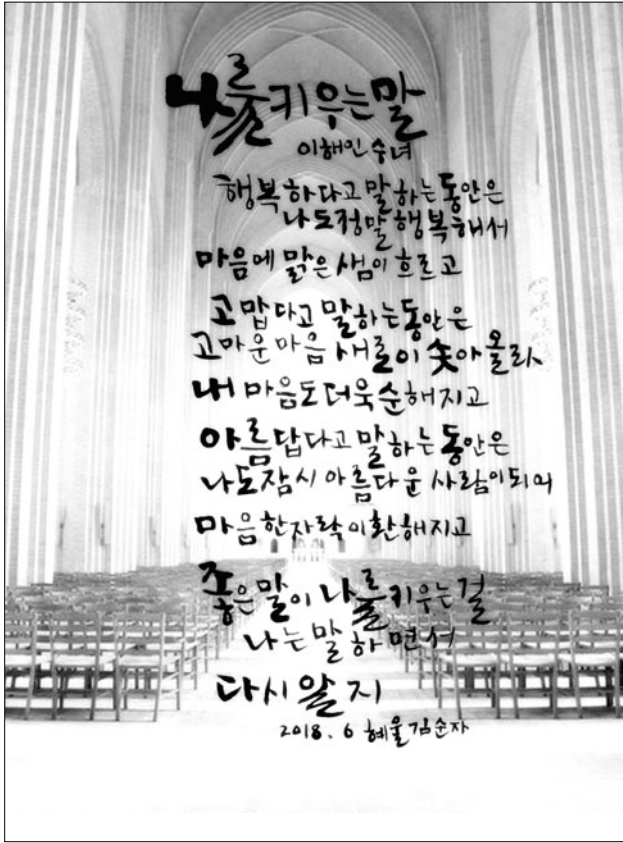 나를 키우는 말
이해인 수녀
행복하다고 말하는 동안은
나도 정말 행복해서
마음에 맑은 샘이 흐르고
고맙다고 말하는 동안은
고마운 마음 새로이 솟아 올라
내 마음도 더욱 순해지고
아름답다고 말하는 동안은
나도 잠시 아름다운 사람이 되어
마음 한 자락이 환해지고
좋은 말이 나를 키우는 걸
나는 말하면서
다시 알지
2018. 6 혜울 김순자